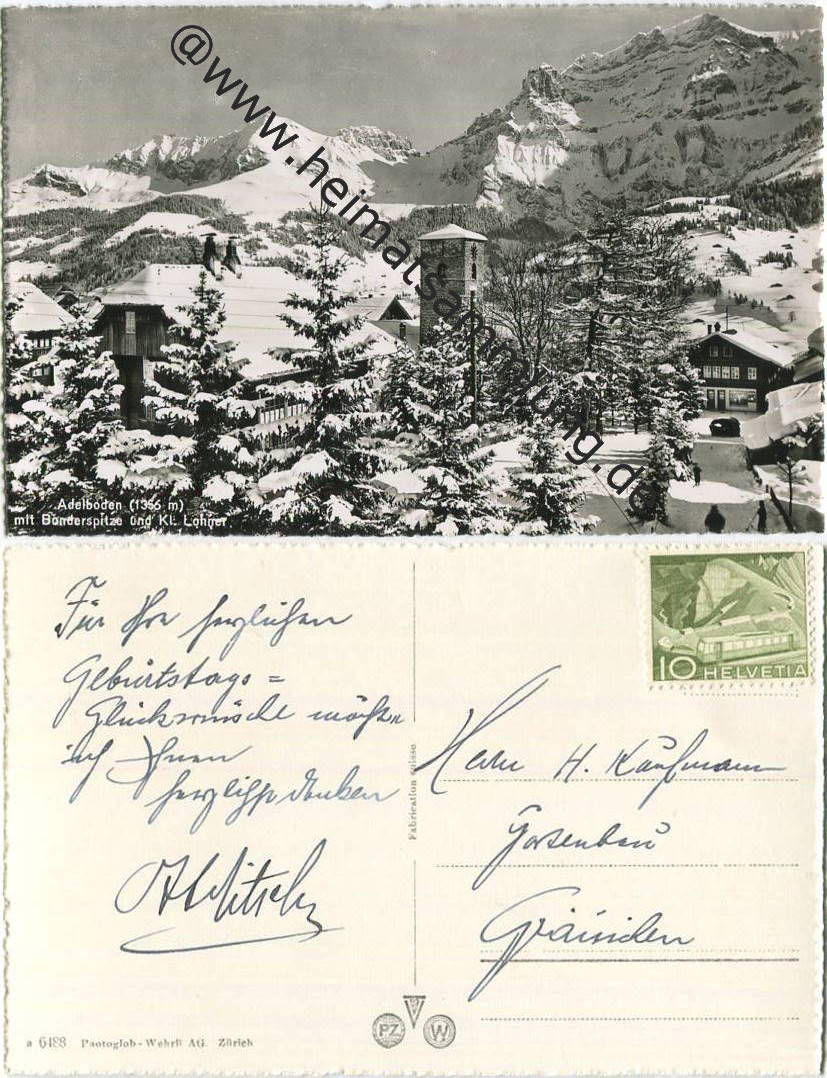 @www.heimatsammlung.de
Adelboden (1356 m)
mit Bonderspitze und Kl. Lohner
Für Ihre herzlichen
Geburtstags=
Glückwünsche möchte
ich Ihnen
herzlichst danken
10 HELVETIA
Herrn H. Kaufmann
Gartenbau
Fabrication suisse
a 6488 Photoglob-Wehrli AG. Zürich
PZ W